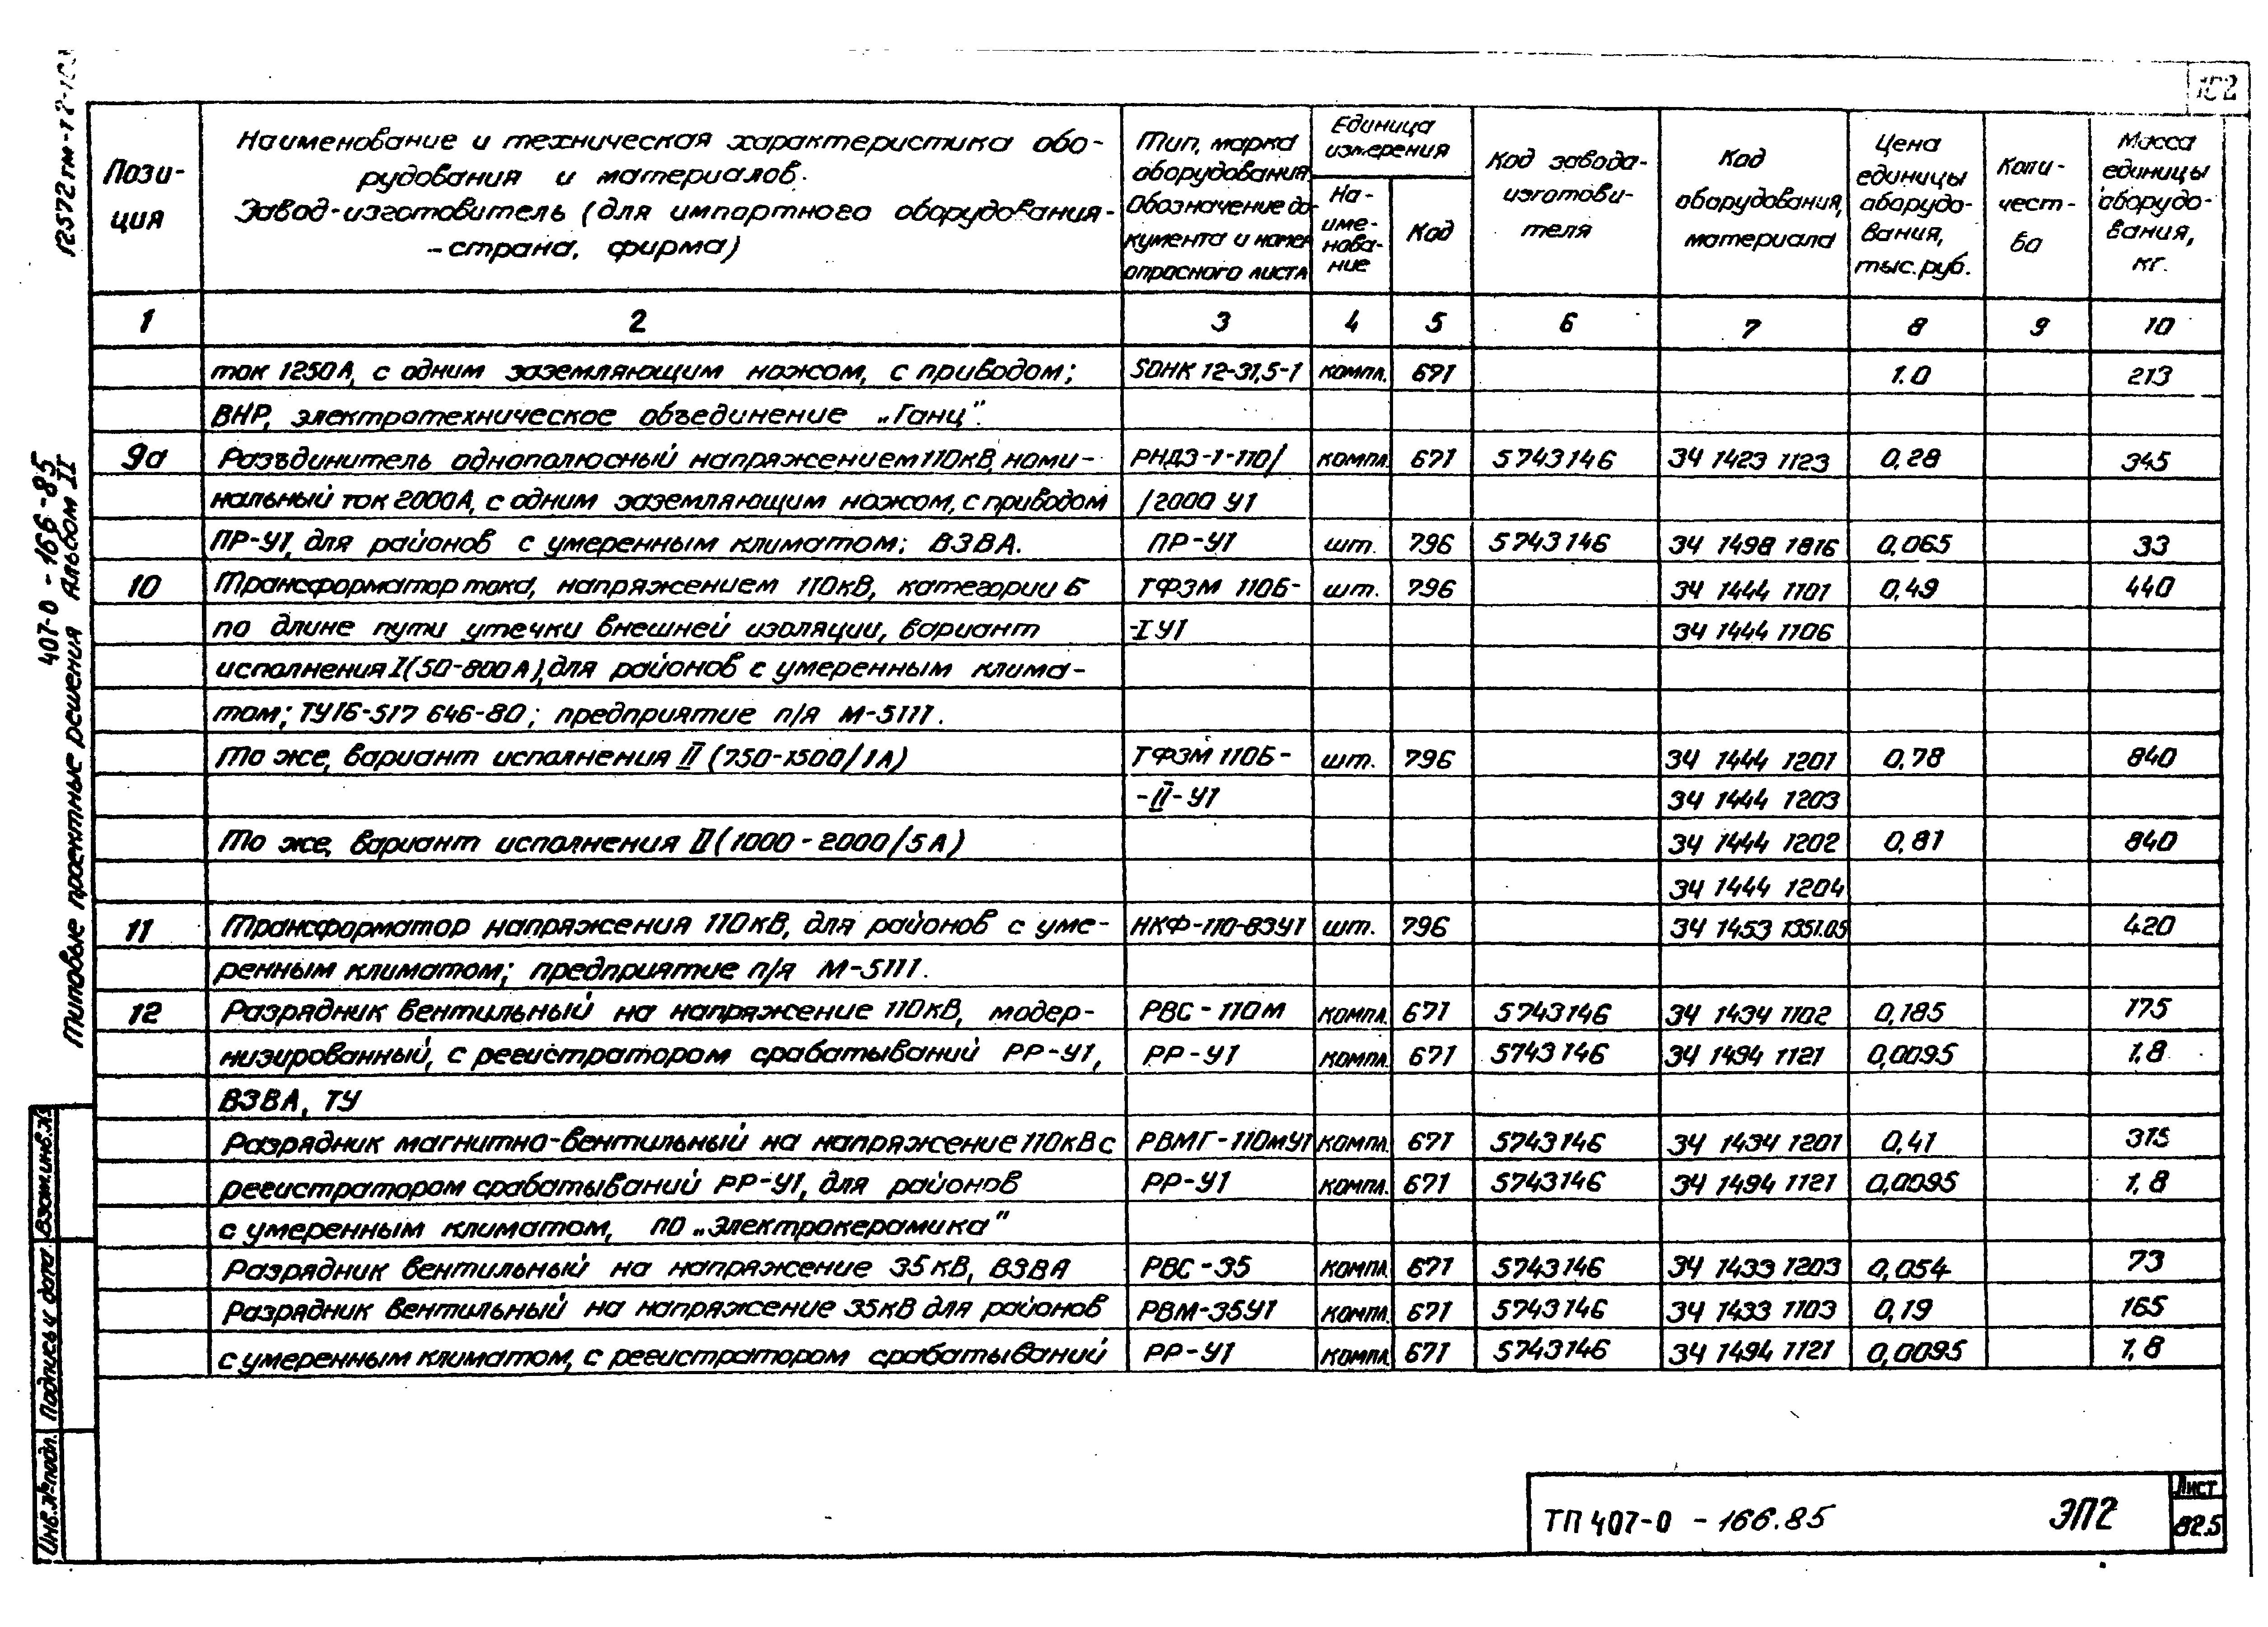 102
12572 тм-т2-
407-0-166-85
Типовые проектные решения Альбом II
Пози-
ция
Наименование и техническая характеристика обо-
рудования и материалов.
Завод-изготовитель (для импортного оборудования-
-страна, фирма)
Тип, марка
оборудования.
Обозначение до-
кумента и номер
опросного листа
Единица
измерения
На-
име-
нова-
ние
Код
Код завода-
изготови-
теля
Код
оборудования,
материала
Цена
единицы
оборудо-
вания,
тыс. руб.
Коли-
чест-
ва
Масса
единицы
оборудо-
вания,
кг.
1 2 3 4 5 6 7 8 9 10
ток 1250А, с одним заземляющим ножом, с приводом; SOНК 12-31,5-1 компл. 671 1.0 213
ВНР, электротехническое объединение „Ганц".
9а Разъдинитель однополюсный напряжением 110кВ, номи- РНДЗ-1-110/ компл. 671 5743146 34 1423 1123 0,28 345
нальный ток 2000А, с одним заземляющим ножом, с приводом /2000 У1
ПР-У1, для районов с умеренным климатом; ВЗВА. ПР-У1 шт. 796 5743146 34 1498 1816 0,065 33
10 Трансформатор тока, напряжением 110кВ, категории Б ТФЗМ 110Б- шт. 796 34 1444 1101 0,49 440
по длине пути утечки внешней изоляции, вариант -I У1 34 1444 1106
исполнения I (50-800А), для районов с умеренным клима-
том; ТУ16-517 646-80; предприятие п/я М-5111.
То же, вариант исполнения II (750-1500/1А) ТФЗМ 110Б- шт. 796 34 1444 1201 0,78 840
-II-У1 34 1444 1203
То же, вариант исполнения II (1000-2000/5А) 34 1444 1202 0,81 840
34 1444 1204
11 Трансформатор напряжения 110кВ, для районов с уме- НКФ-110-83У1 шт. 796 34 1453 1351.05 420
ренным климатом; предприятие п/я М-5111.
12 Разрядник вентильный на напряжение 110кВ, модер- РВС-110М компл. 671 5743146 34 1434 1102 0,185 175
низированный, с регистратором срабатываний РР-У1, РР-У1 компл. 671 5743146 34 1494 1121 0,0095 1,8
ВЗВА, ТУ
Разрядник магнитно-вентильный на напряжение 110кВ с РВМГ-110МУ1 компл. 671 5743146 34 1434 1201 0,41 315
регистратором срабатываний РР-У1, для районов РР-У1 компл. 671 5743146 34 1494 1121 0,0095 1,8
с умеренным климатом, ПО „Электрокерамика"
Разрядник вентильный на напряжение 35кВ, ВЗВА РВС-35 компл. 671 5743146 34 1433 1203 0,054 73
Разрядник вентильный на напряжение 35кВ для районов РВМ-35У1 компл. 671 5743146 34 1433 1103 0,19 165
с умеренным климатом, с регистратором срабатываний РР-У1 компл. 671 5743146 34 1494 1121 0,0095 1,8
Взам.инв.№
Подпись и дата
Инв.№подл.
ТП 407-0 -166.85 ЭП2
Лист
82.5